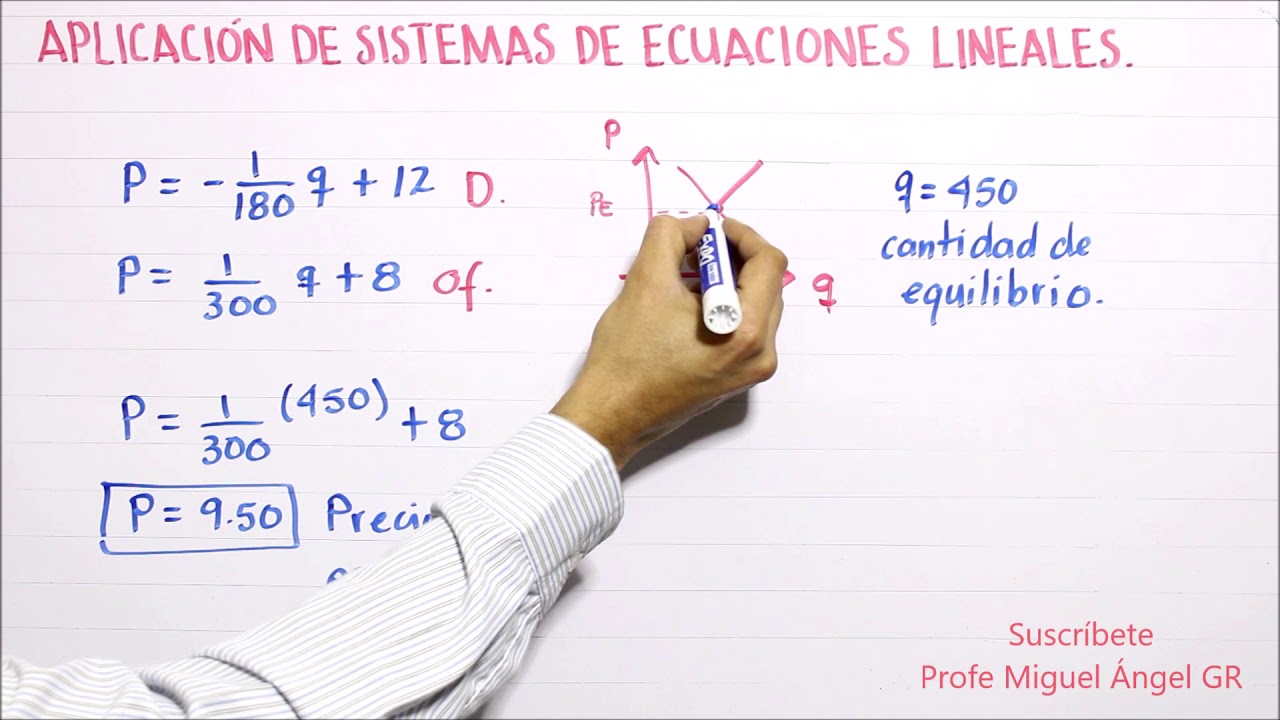 APLICACIÓN DE SISTEMAS DE ECUACIONES LINEALES.
P = -1/180 q + 12 D.
P = 1/300 q + 8 Of.
P = 1/300 (450) + 8
P = 9.50
P
PE
q
q = 450
cantidad de
equilibrio.
Suscríbete
Profe Miguel Ángel GR